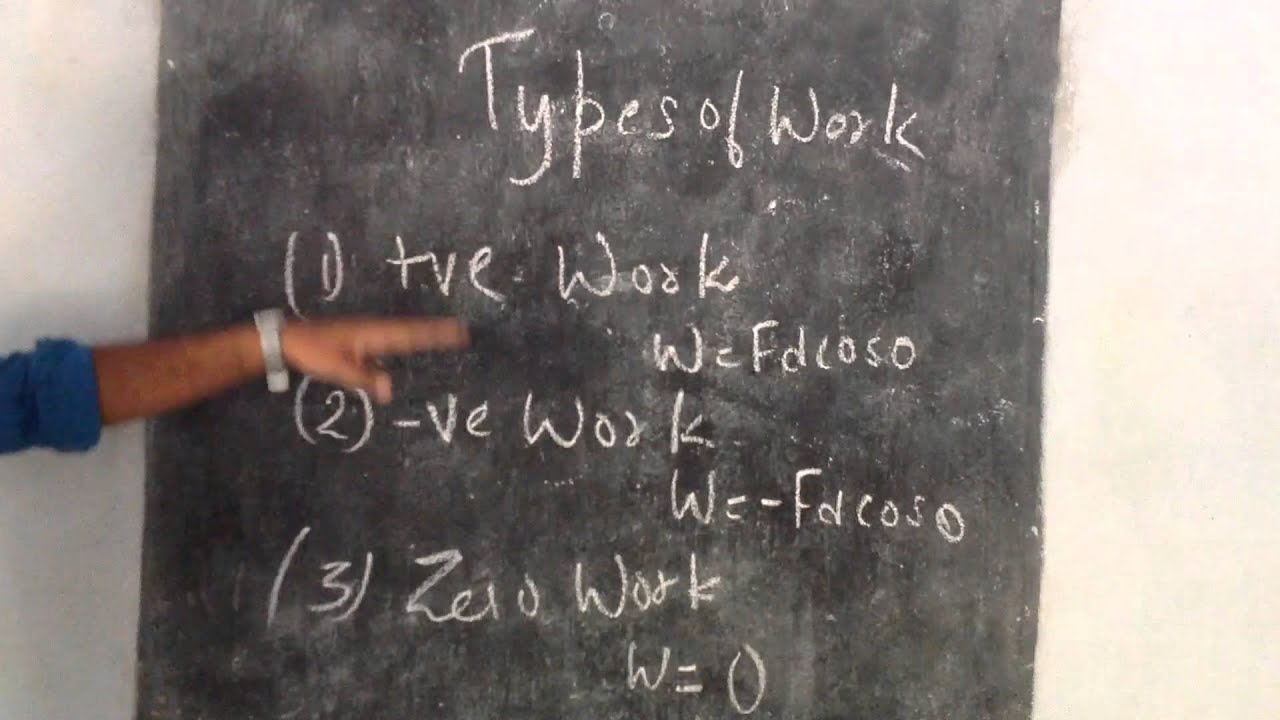 Types of Work
(1) +ve Work
W=Fdcos0
(2) -ve Work
W=-Fdcos0
(3) Zero Work
W=0